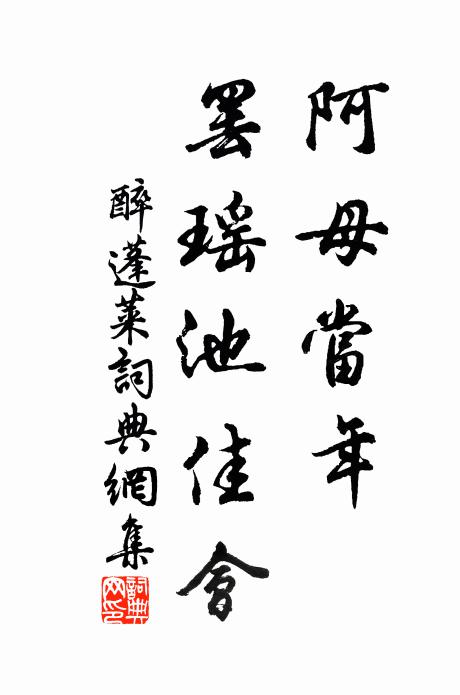 阿母當年
罢瑶池佳會
醉蓬萊詞典網集
詞典网印